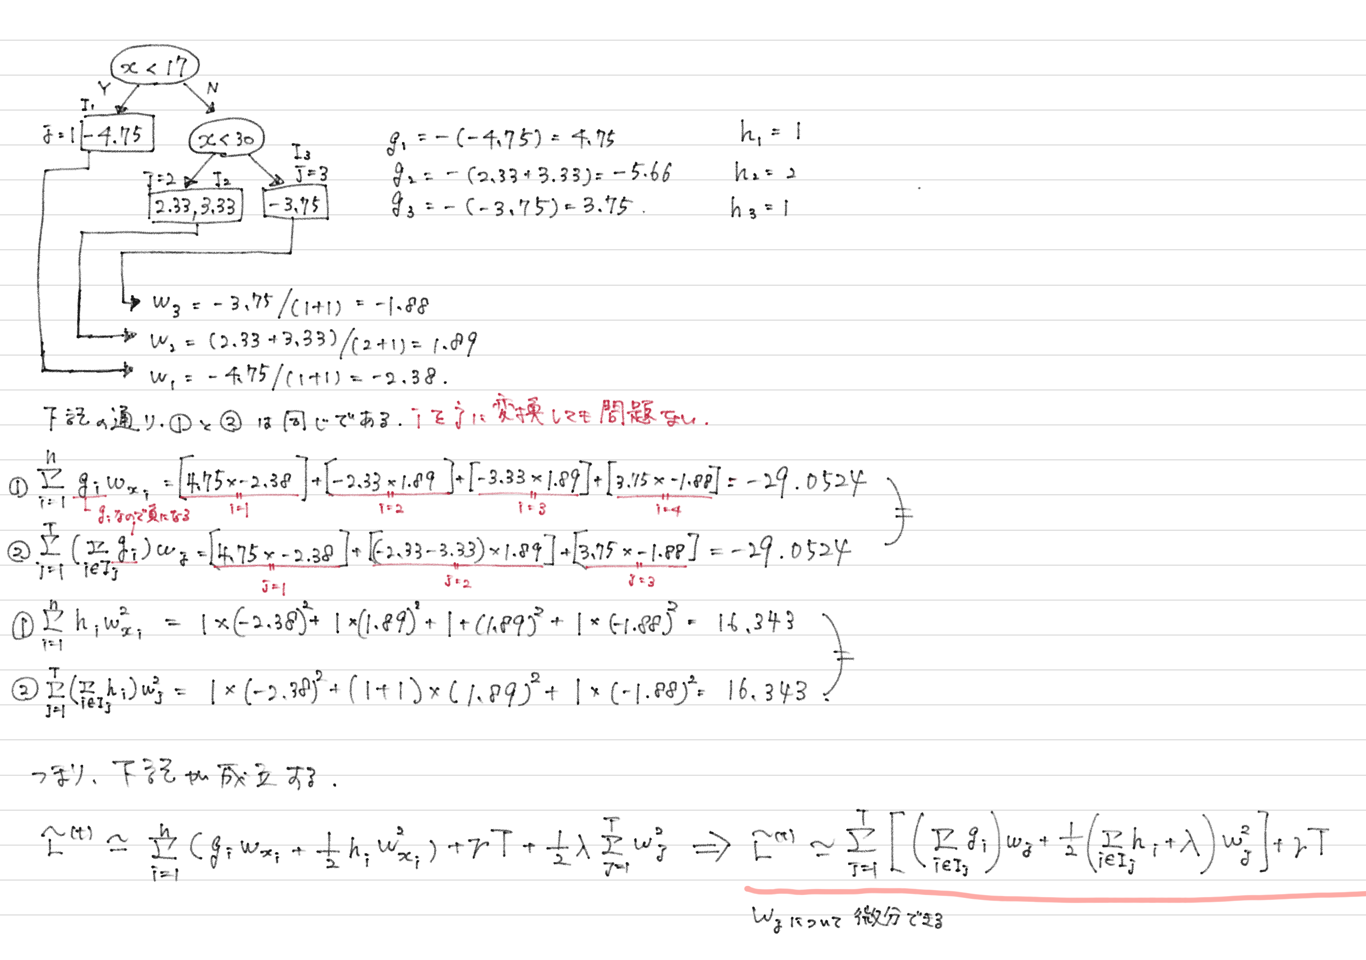 x < 17
Y N
I₁
j=1 -4.75
x < 30
I₃
j=2 I₂ j=3
2.33, 3.33 -3.75
g₁ = -(-4.75) = 4.75 h₁ = 1
g₂ = -(2.33+3.33) = -5.66 h₂ = 2
g₃ = -(-3.75) = 3.75. h₃ = 1
w₃ = -3.75/(1+1) = -1.88
w₂ = (2.33+3.33)/(2+1) = 1.89
w₁ = -4.75/(1+1) = -2.38.
下記の通り、①と②は同じである. iをjに変換しても問題ない.
① Σ_{i=1}^{n} g_i w_{x_i} = [4.75×-2.38]+[-2.33×1.89]+[-3.33×1.89]+[3.75×-1.88] = -29.0524
g_iなので負になる i=1 i=2 i=3 i=4
② Σ_{j=1}^{T} (Σ_{i∈I_j} g_i) w_j = [4.75×-2.38]+[(-2.33-3.33)×1.89]+[3.75×-1.88] = -29.0524
j=1 j=2 j=3
=
① Σ_{i=1}^{n} h_i w²_{x_i} = 1×(-2.38)²+1×(1.89)²+1+(1.89)²+1×(-1.88)² = 16.343
② Σ_{j=1}^{T} (Σ_{i∈I_j} h_i) w_j² = 1×(-2.38)²+(1+1)×(1.89)²+1×(-1.88)² = 16.343
=
つまり、下記が成立する.
L̃^{(t)} ≃ Σ_{i=1}^{n} (g_i w_{x_i} + ½ h_i w²_{x_i}) + γT + ½ λ Σ_{j=1}^{T} w_j² ⇒ L̃^{(t)} ≃ Σ_{j=1}^{T} [(Σ_{i∈I_j} g_i) w_j + ½ (Σ_{i∈I_j} h_i + λ) w_j²] + γT
w_jについて微分できる